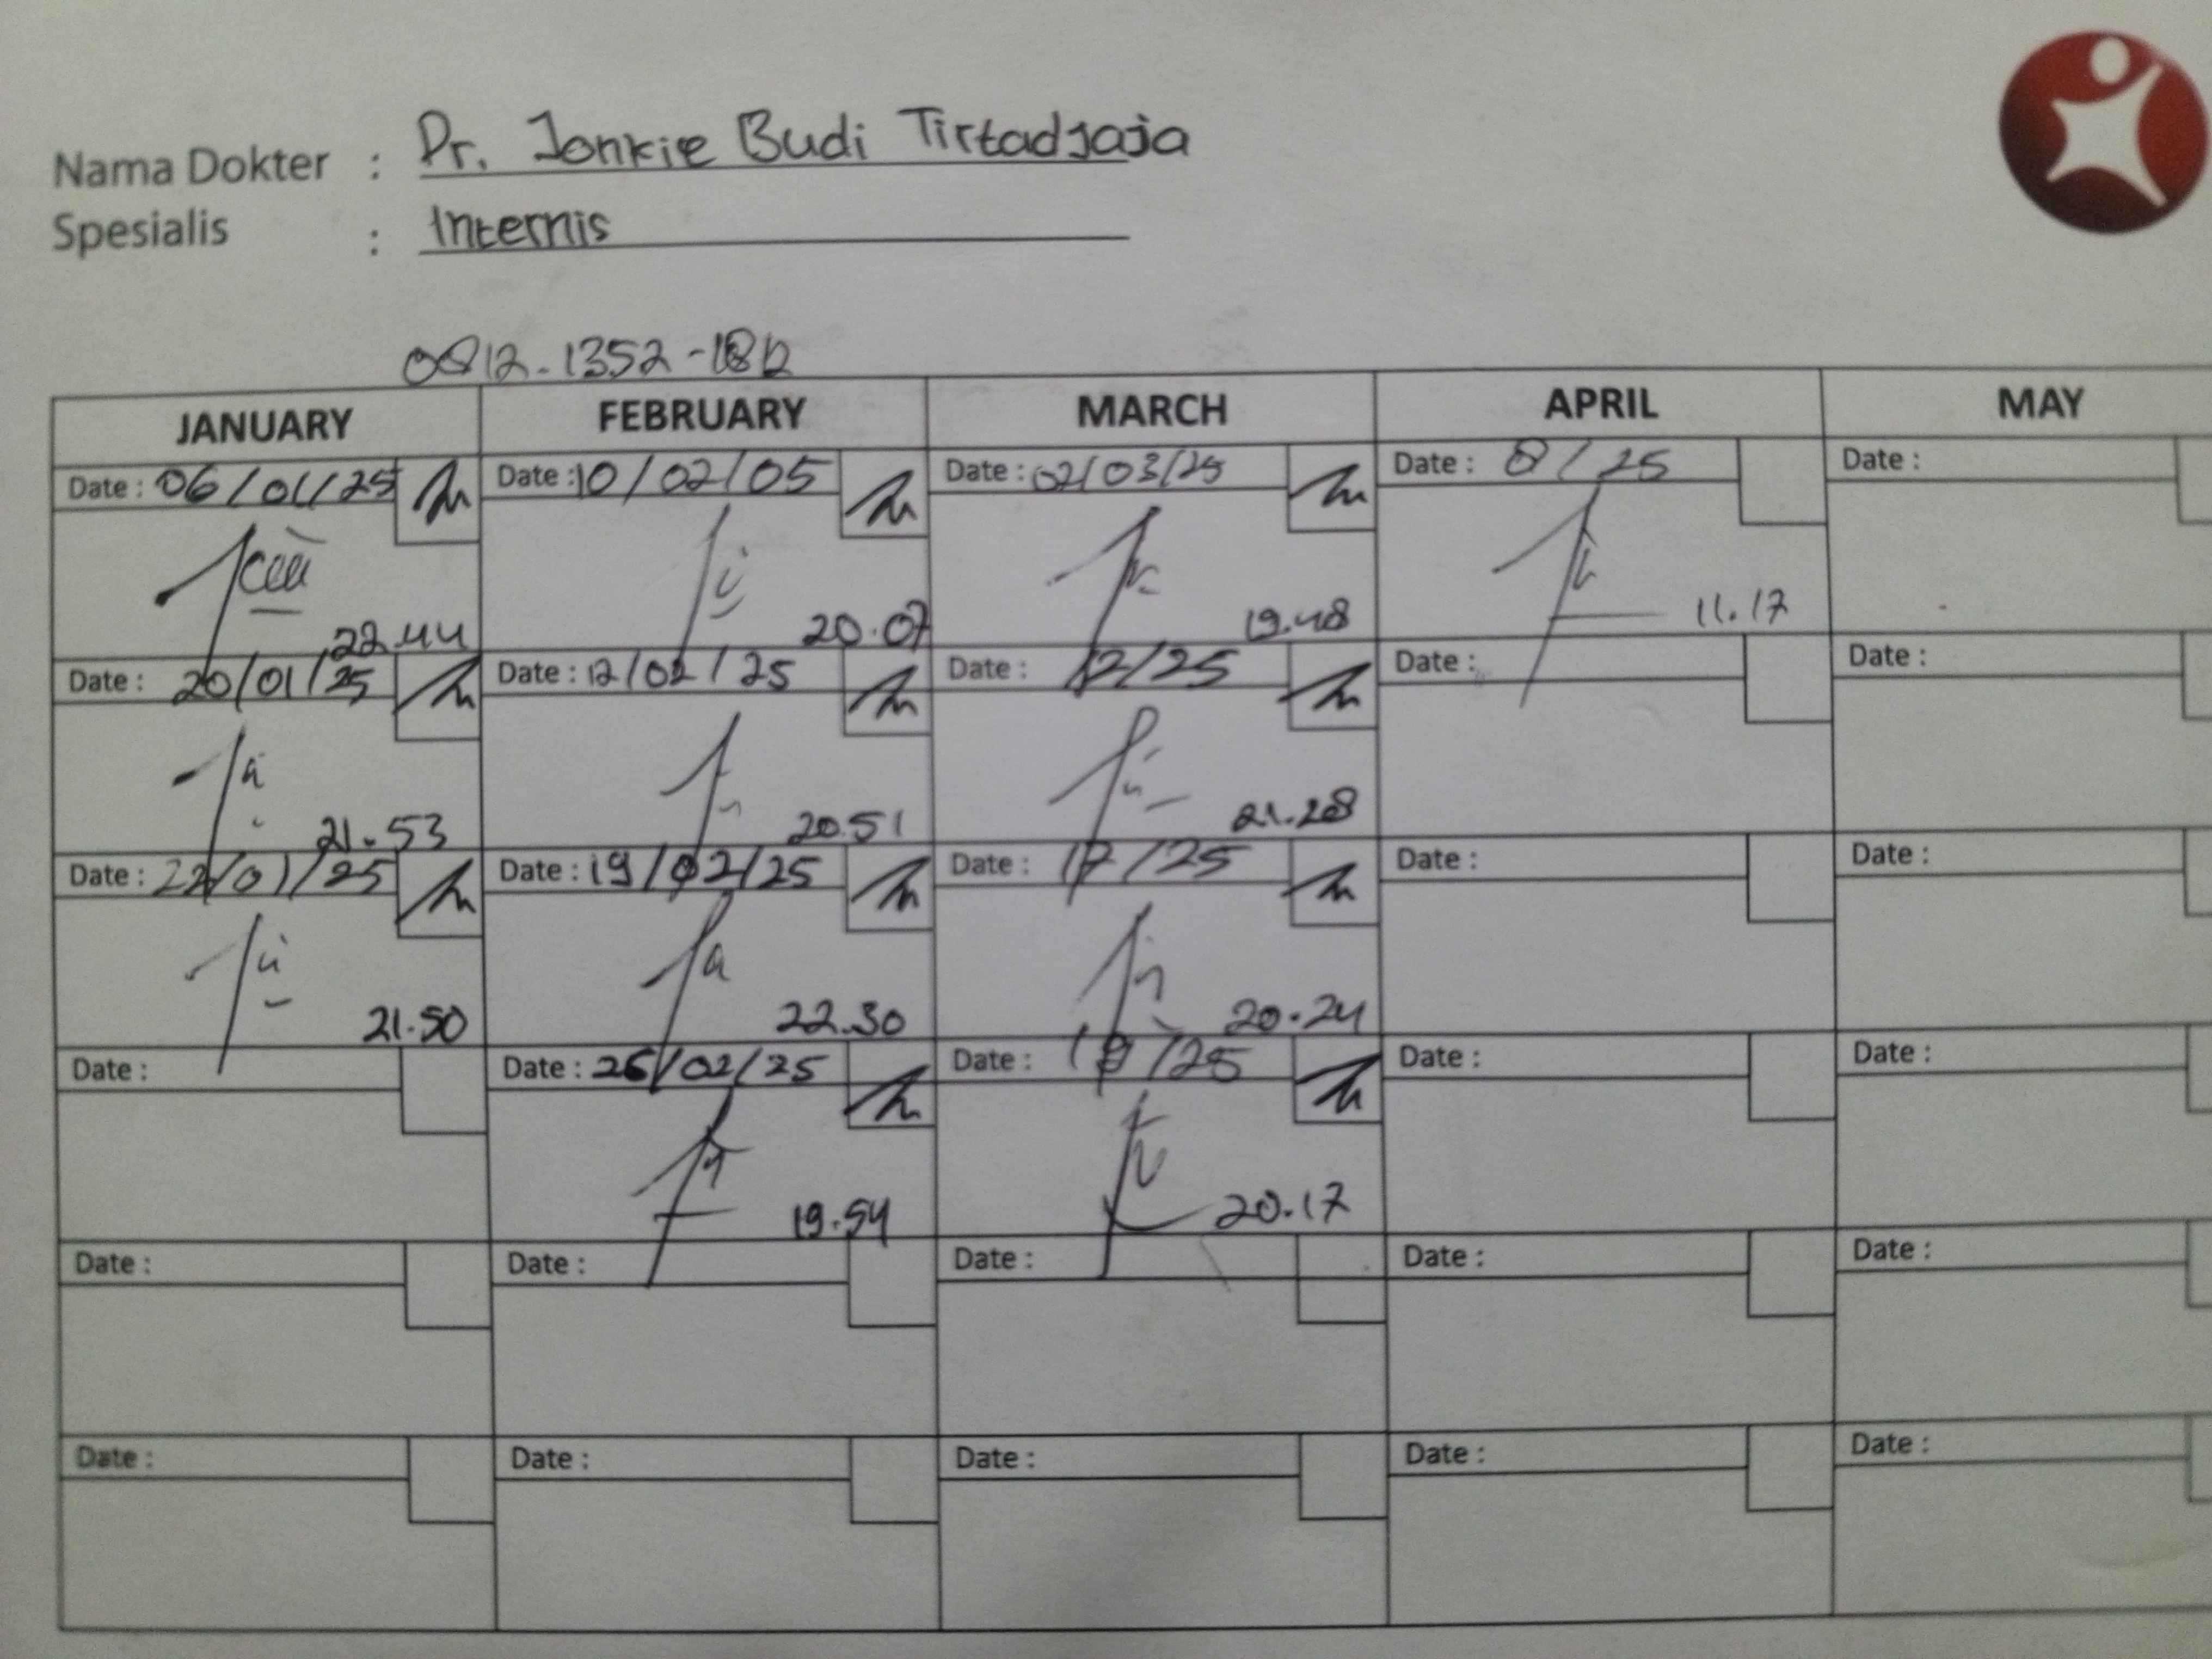 Nama Dokter : Dr. Jonkie Budi Tirtadjaja
Spesialis : Internis
0812.1352-1812
JANUARY FEBRUARY MARCH APRIL MAY
Date : 06/01/25 Date : 10/02/05 Date : 02/03/25 Date : 8/25 Date :
22.44 20.07 19.48 11.17
Date : 20/01/25 Date : 12/02/25 Date : 12/25 Date : Date :
21.53 20.51 21.28
Date : 22/01/25 Date : 19/02/25 Date : 17/25 Date : Date :
21.50 22.30 20.24
Date : Date : 26/02/25 Date : 19/25 Date : Date :
19.54 20.17
Date : Date : Date : Date : Date :
Date : Date : Date : Date : Date :